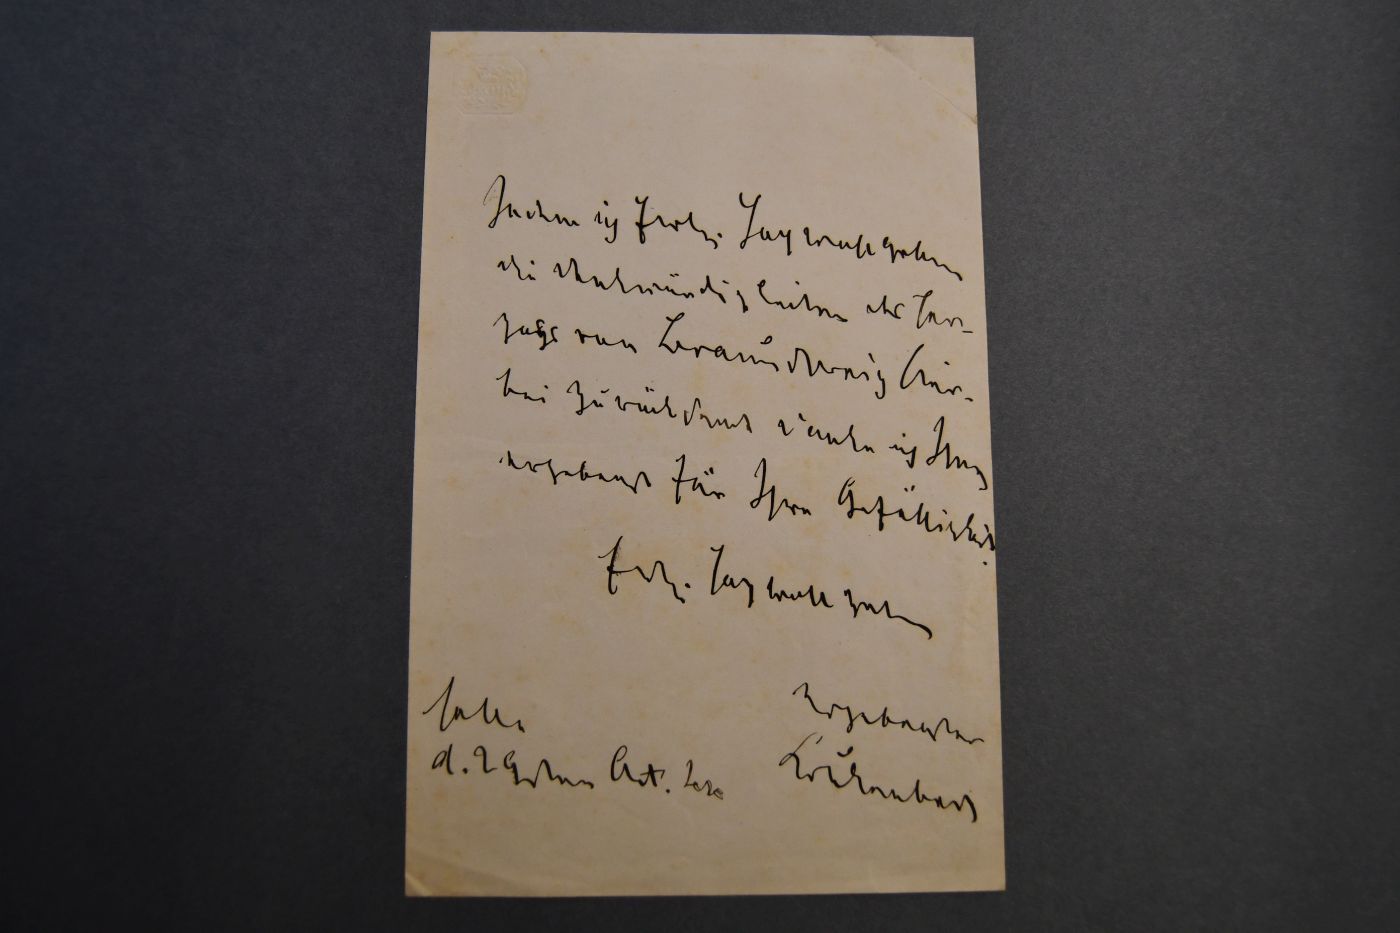 Indem ich Ewr. Hochwohlgeboren
die Denkwürdigkeiten des Her-
zogs von Braunschweig hier-
bei zurücksende danke ich Ihnen
ergebenst für Ihre Gefälligkeit.
Ewr. Hochwohlgeboren
Halle
d.
ergebenster